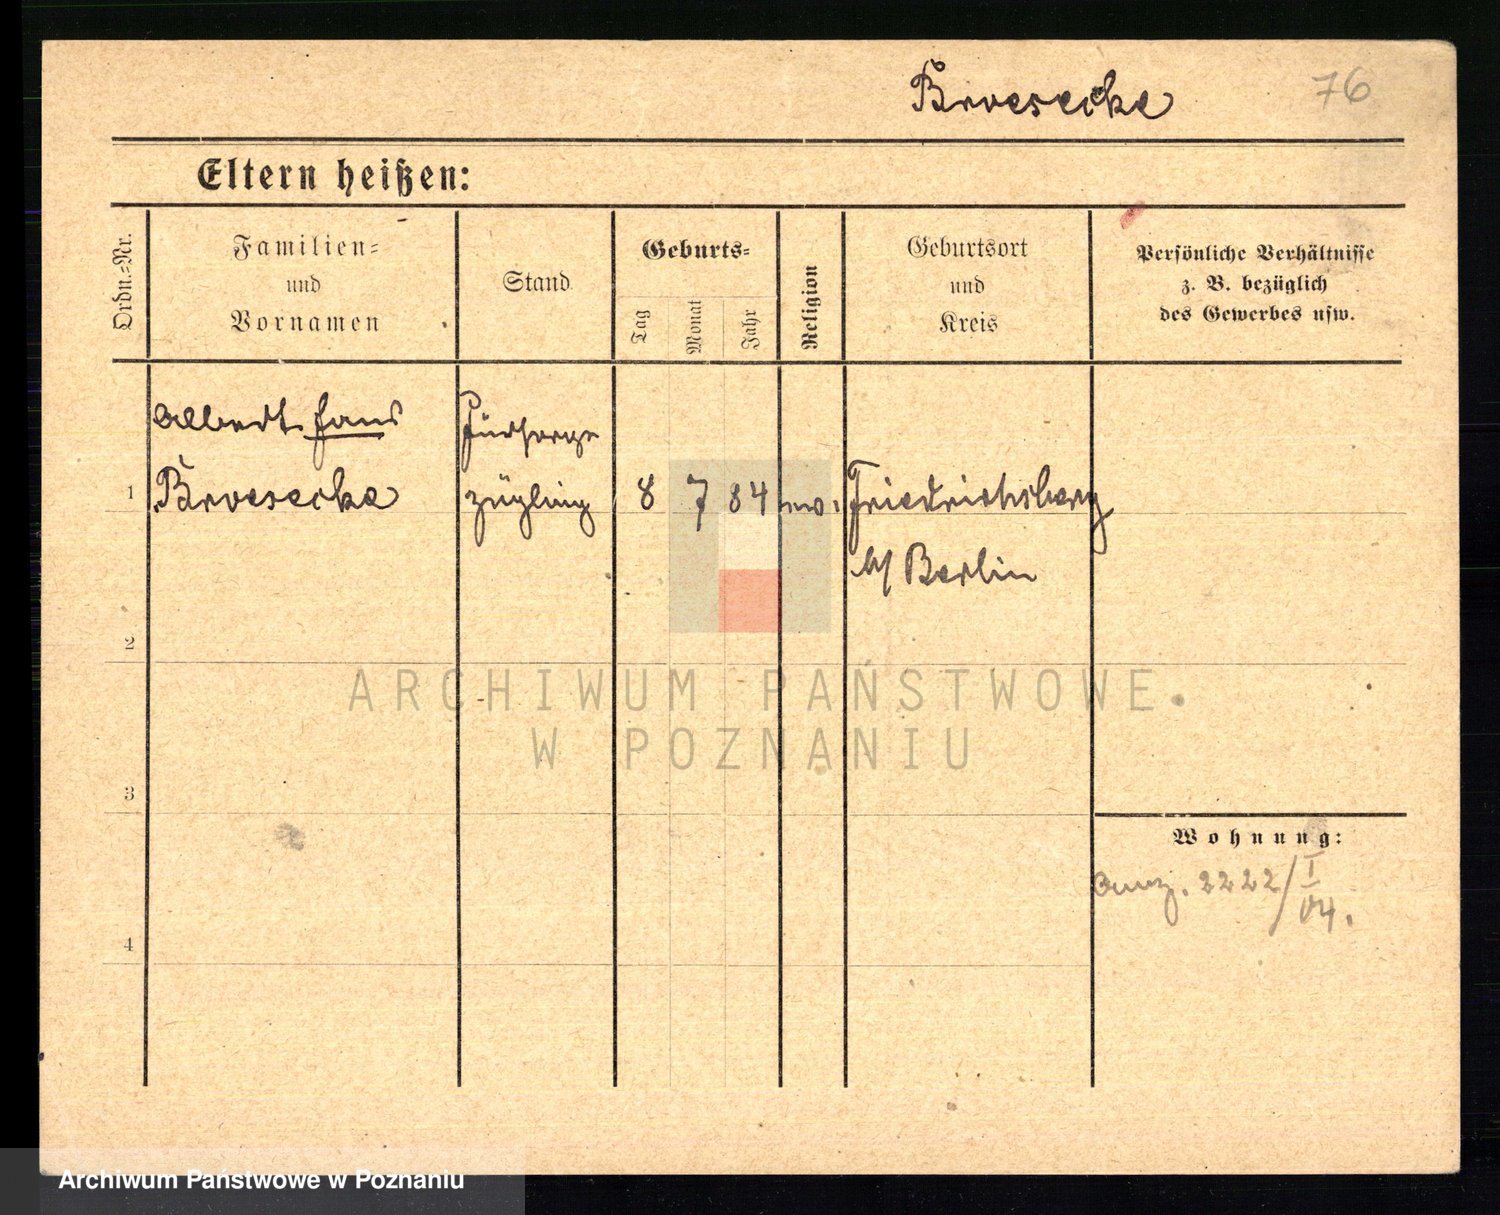 Broesecke 76
Eltern heißen:
Ordn.=Nr.
Familien=
und
Vornamen
Stand
Geburts=
Tag
Monat
Jahr
Religion
Geburtsort
und
Kreis
Persönliche Verhältnisse
z. B. bezüglich
des Gewerbes usw.
Albert
Fürsorge
1 Broesecke zögling 8 7 84 Friedrichsberg
b/ Berlin
2
ARCHIWUM PAŃSTWOWE
W POZNANIU
3
Wohnung:
2222/I
04.
4
Archiwum Państwowe w Poznaniu